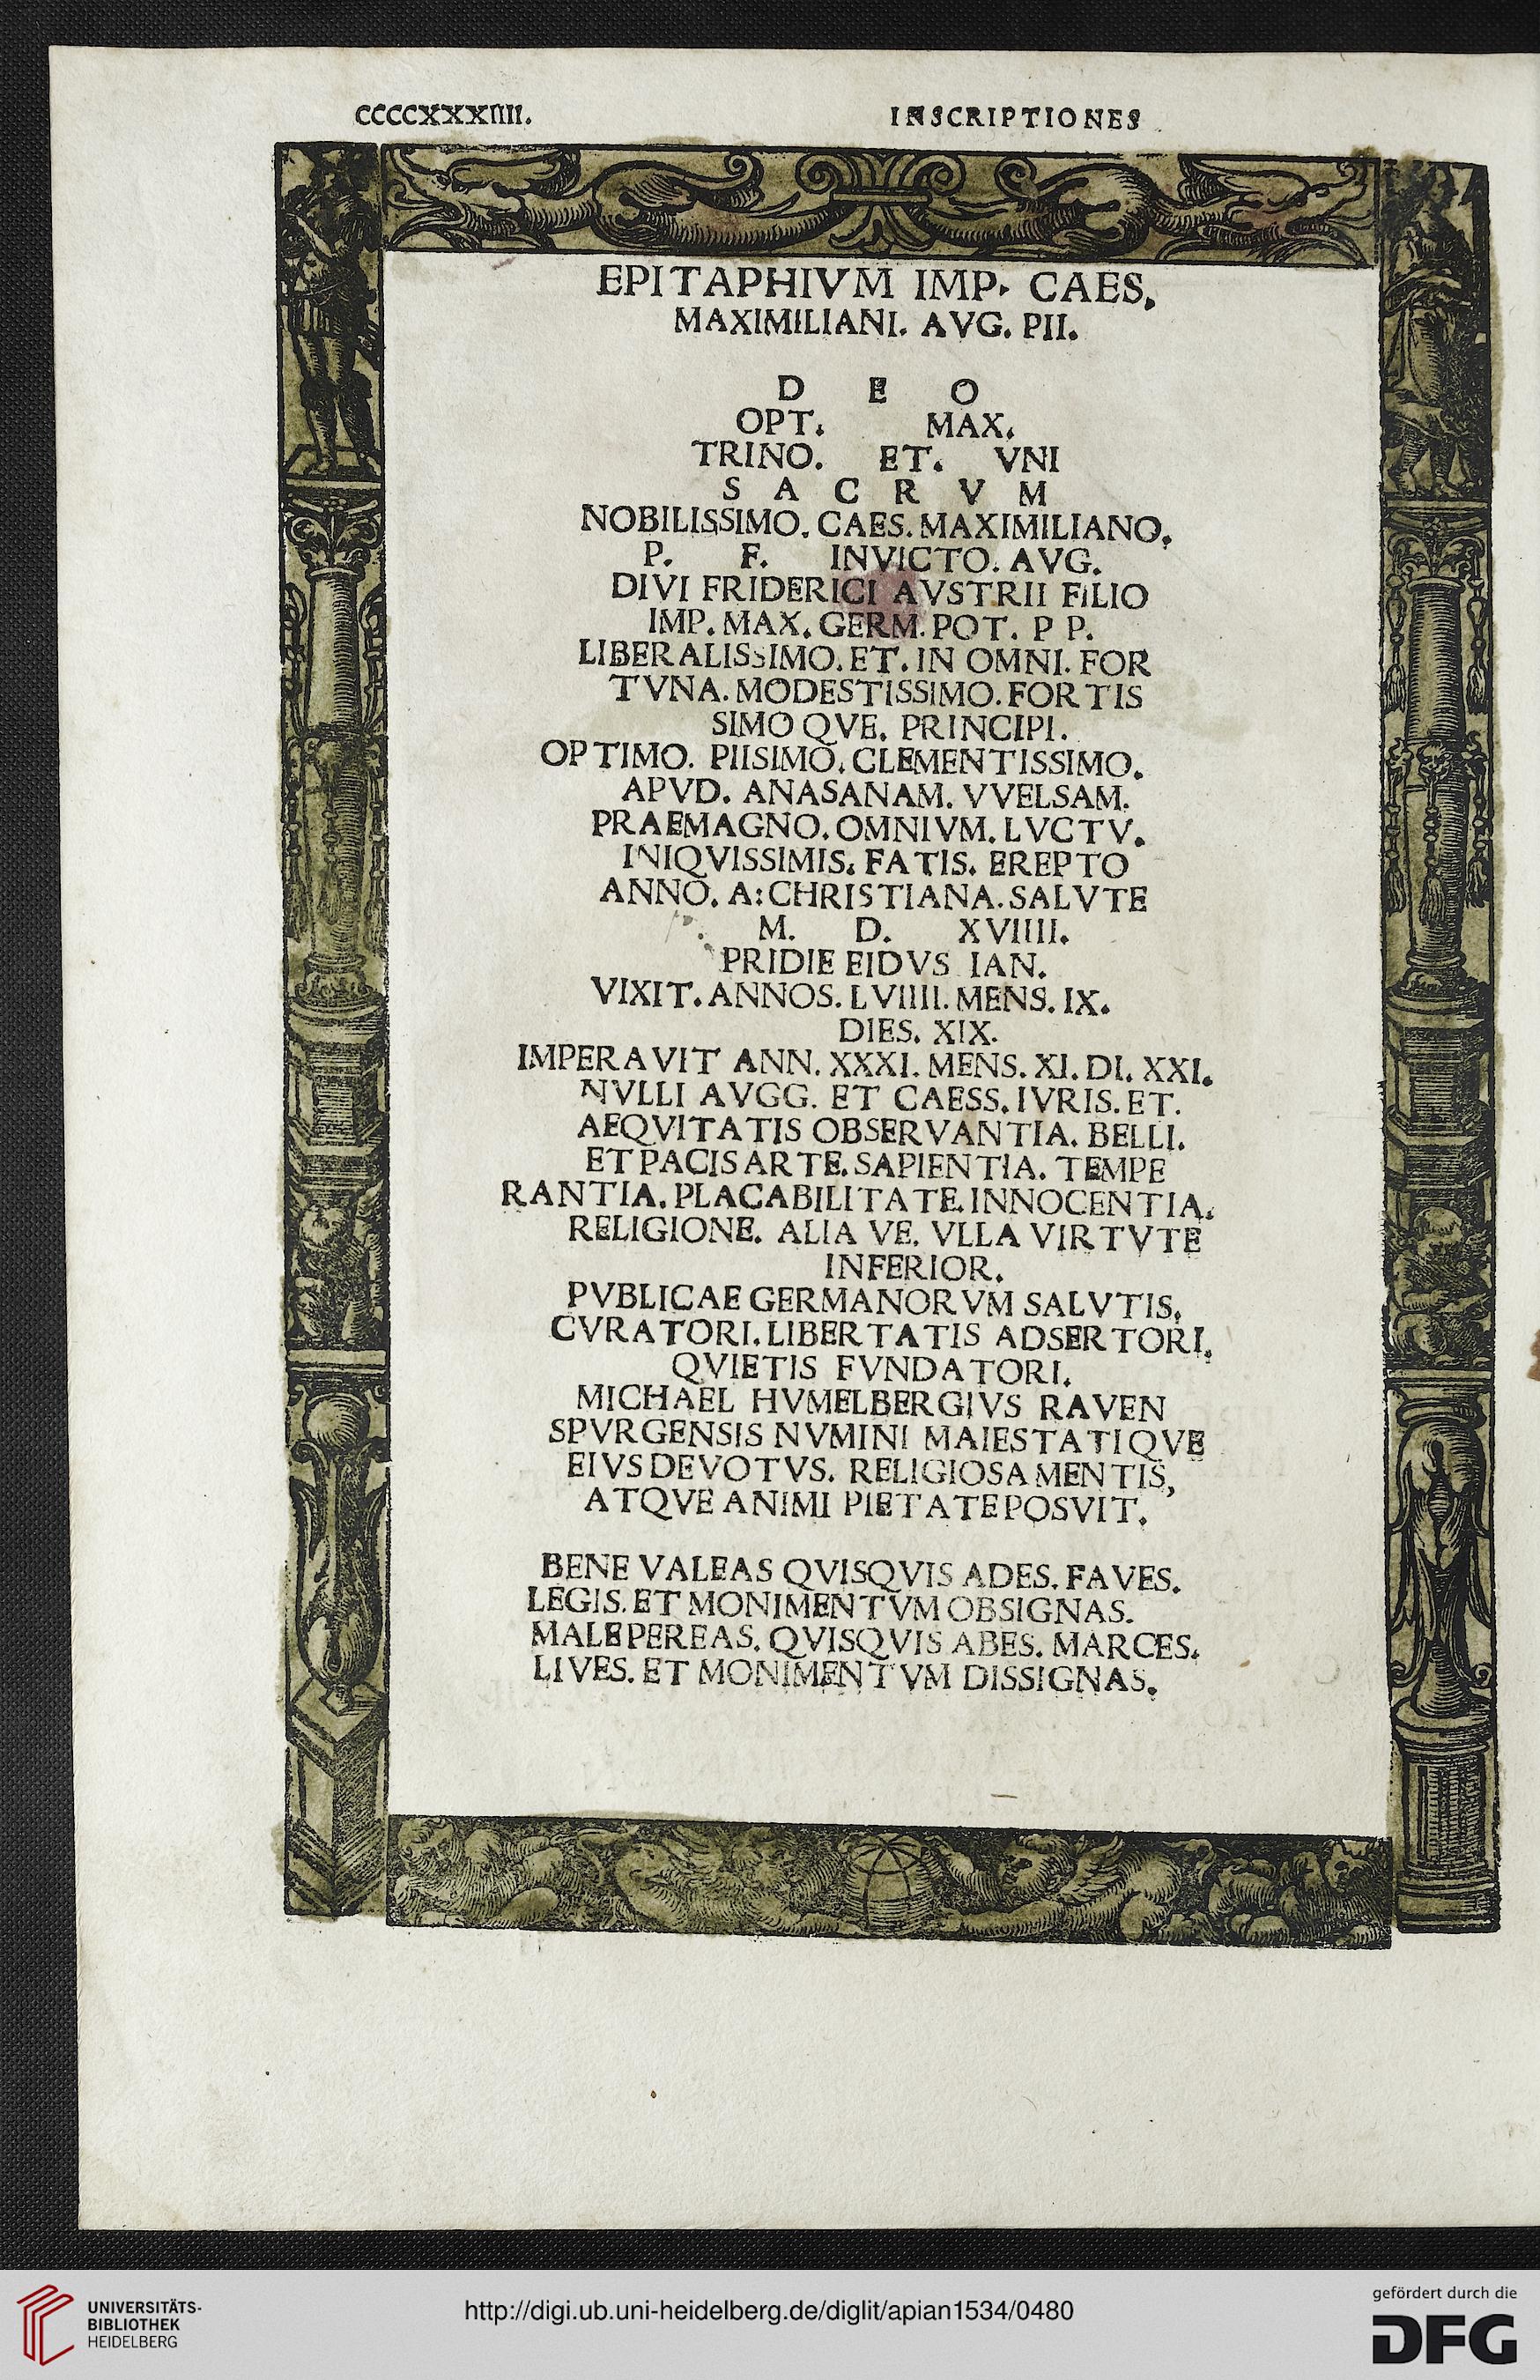 CCCCXXXIIII.
INSCRIPTIONES
EPITAPHIVM IMP. CAES.
MAXIMILIANI. AVG. PII.
D E O
OPT. MAX.
TRINO. ET. VNI
S A C R V M
NOBILISSIMO. CAES. MAXIMILIANO.
P. F. INVICTO. AVG.
DIVI FRIDERICI AVSTRII FILIO
IMP. MAX. GERM. POT. P P.
LIBERALISSIMO. ET. IN OMNI. FOR
TVNA. MODESTISSIMO. FORTIS
SIMO QVE. PRINCIPI.
OPTIMO. PIISIMO. CLEMENTISSIMO.
APVD. ANASANAM. VVELSAM.
PRAEMAGNO. OMNIVM. LVCTV.
INIQVISSIMIS. FATIS. EREPTO
ANNO. A: CHRISTIANA. SALVTE
M. D. XVIIII.
PRIDIE EIDVS IAN.
VIXIT. ANNOS. LVIIII. MENS. IX.
DIES. XIX.
IMPERAVIT ANN. XXXI. MENS. XI. DI. XXI.
NVLLI AVGG. ET CAESS. IVRIS. ET.
AEQVITATIS OBSERVANTIA. BELLI.
ET PACIS ARTE. SAPIENTIA. TEMPE
RANTIA. PLACABILITATE. INNOCENTIA.
RELIGIONE. ALIA VE. VLLA VIRTVTE
INFERIOR.
PVBLICAE GERMANORVM SALVTIS.
CVRATORI. LIBERTATIS ADSERTORI.
QVIETIS FVNDATORI.
MICHAEL HVMELBERGIVS RAVEN
SPVRGENSIS NVMINI MAIESTATIQVE
EIVS DEVOTVS. RELIGIOSA MENTIS,
ATQVE ANIMI PIETATE POSVIT.
BENE VALEAS QVISQVIS ADES. FAVES.
LEGIS. ET MONIMENTVM OBSIGNAS.
MALE PEREAS. QVISQVIS ABES. MARCES.
LIVES. ET MONIMENTVM DISSIGNAS.
UNIVERSITÄTS-
BIBLIOTHEK
HEIDELBERG
http://digi.ub.uni-heidelberg.de/diglit/apian1534/0480
gefördert durch die
DFG